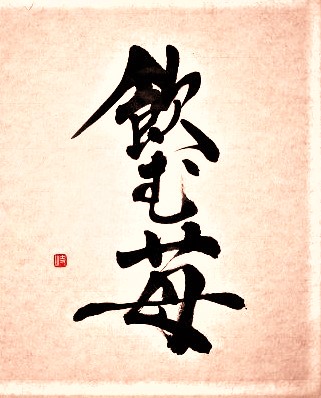 飲む苺